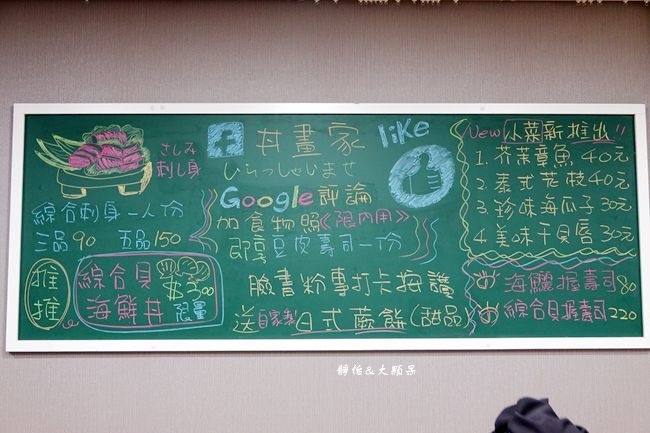 さしみ
刺し身
綜合刺身一人份
三品90 五品150
推推
綜合貝
海鮮丼
$300
限量
f 丼畫家 like
いらっしゃいませ
Google評論
加食物照《限內用》
即享豆皮壽司一份
臉書粉專打卡按讚
送自家製日式蕨餅(甜品)
New 小菜新推出!!
1. 芥茉章魚 40元
2. 泰式花枝 40元
3. 珍味海瓜子 30元
4. 美味干貝唇 30元
海鱺握壽司 80
綜合貝握壽司 220
靜怡&大顆呆